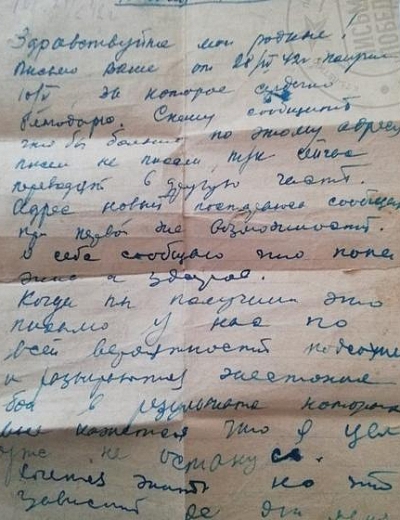 Здравствуйте мои родные!
Письмо Ваше от 28/IV 42г. получил
10/V, за которое сердечно
благодарю. Спешу сообщить
что бы больше по этому адресу
писем не писали, тук сейчас
переводят в другую часть.
Адрес новый постараюсь сообщить
при первой же возможности.
О себе сообщаю что пока
жив и здоров.
Когда вы получите это
письмо у нас по
всей вероятности
и разыграются жестокие
бои в результате которых
мне кажется что я цел
уже не останусь.
знать но это
зависит не от меня